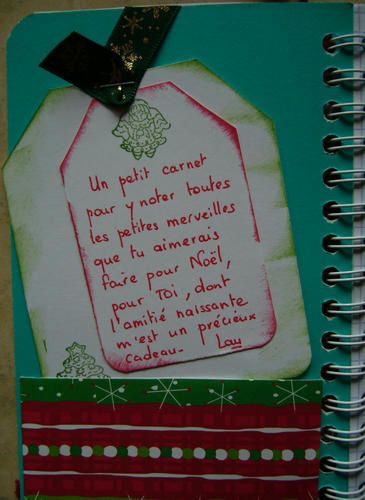 Un petit carnet
pour y noter toutes
les petites merveilles
que tu aimerais
faire pour Noël,
pour Toi, dont
l'amitié naissante
m'est un précieux
cadeau-   Lau